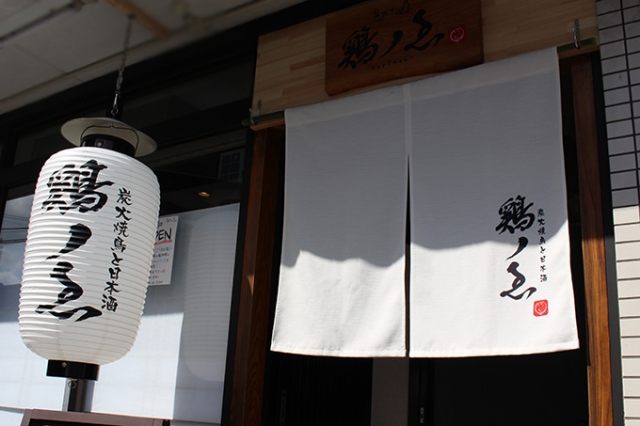 鶏ノゑ
鶏ノゑ
炭火焼鳥と日本酒
PEN
鶏ノゑ
炭火焼鳥と日本酒